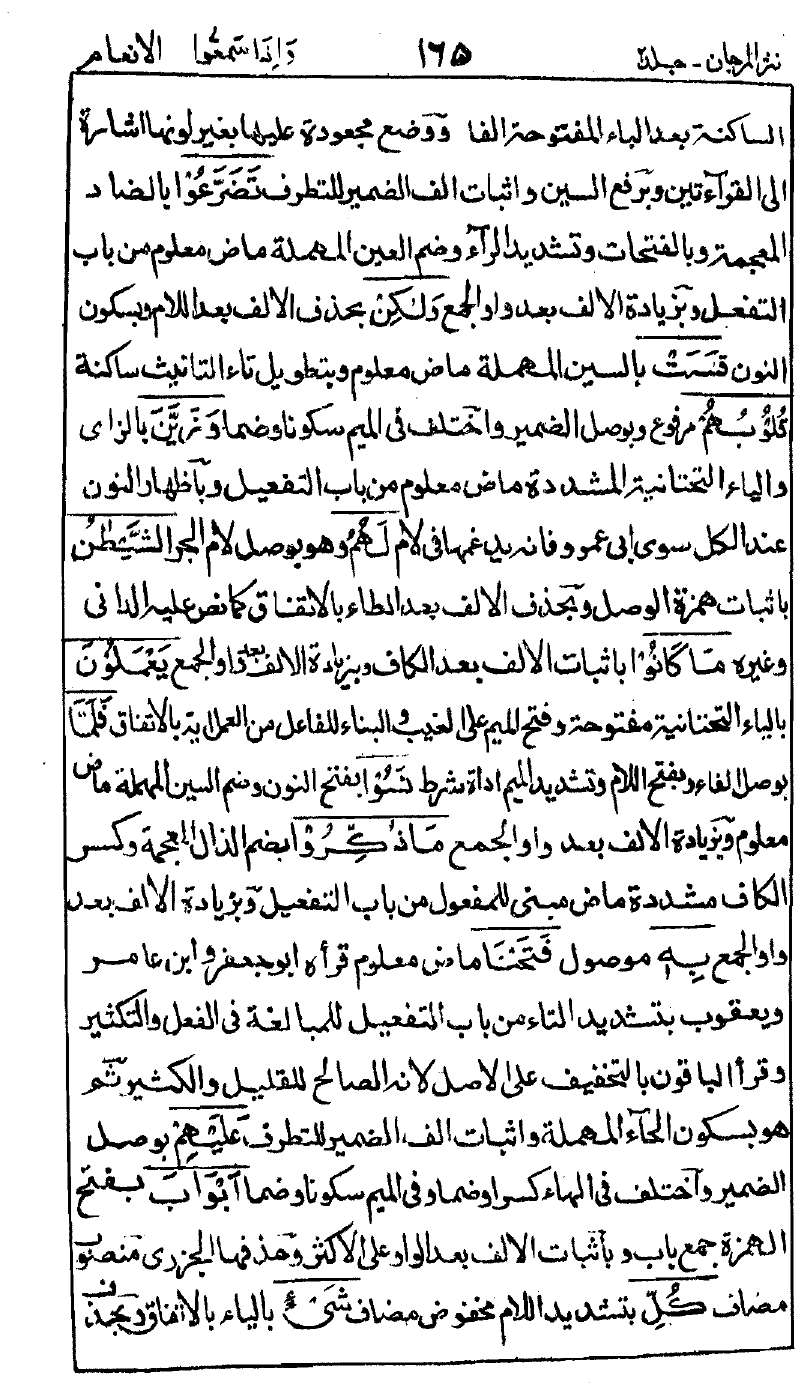 نثر المرجان - جلد ٢ ١٦٥ واذا سمعوا الانعام
الساكنة بعد الباء المفتوحة الفا ووضع مجعودة عليها بغير لونها اشارة
الى القرآءتين وبرفع السين واثبات الف الضمير للتطرف تَضَرَّعُوْا بالضاد
المعجمة وبالفتحات وتشديد الرآء وضم العين المهملة ماض معلوم من باب
التفعل وبزيادة الالف بعد واو الجمع وَلٰكِنْ بحذف الالف بعد اللام وبسكون
النون قَسَتْ بالسين المهملة ماض معلوم وبتطويل تاء التانيث ساكنة
قُلُوْبُهُمْ مرفوع وبوصل الضمير واختلف فى الميم سكونا وضما وَزَيَّنَ بالزاى
والياء التحتانية المشددة ماض معلوم من باب التفعيل وباظهار النون
عند الكل سوى ابى عمرو فانه يدغمها فى لام لَهُمُ وهو بوصل لام الجر الشَّيْطٰنُ
باثبات همزة الوصل وبحذف الالف بعد الطاء بالاتفاق كما نص عليه الدانى
وغيره مَا كَانُوْا باثبات الالف بعد الكاف وبزيادة الالف بعد واو الجمع يَعْمَلُوْنَ
بالياء التحتانية مفتوحة وفتح الميم على الغيب والبناء للفاعل من العمل اية بالاتفاق فَلَمَّا
بوصل الفاء وبفتح اللام وتشديد الميم اداة شرط نَسُوْا بفتح النون وضم السين المهملة ماض
معلوم وبزيادة الالف بعد واو الجمع مَا ذُكِّرُوْا بضم الذال المعجمة وكسر
الكاف مشددة ماض مبنى للمفعول من باب التفعيل وبزيادة الالف بعد
واو الجمع بِهٖ موصول فَتَحْنَا ماض معلوم قرأه ابو جعفر وابن عامر
ويعقوب بتشديد التاء من باب التفعيل للمبالغة فى الفعل والتكثير
وقرأ الباقون بالتخفيف على الاصل لانه الصالح للقليل والكثير ثم
هو بسكون الحآء المهملة واثبات الف الضمير للتطرف عَلَيْهِمْ بوصل
الضمير واختلف فى الهاء كسرا وضما وفى الميم سكونا وضما اَبْوَابَ بفتح
الهمزة جمع باب وباثبات الالف بعد الواو على الاكثر وحذفها الجزرى منصوب
مضاف كُلِّ بتشديد اللام مخفوض مضاف شَىْءٍ بالياء بالاتفاق وبحذف